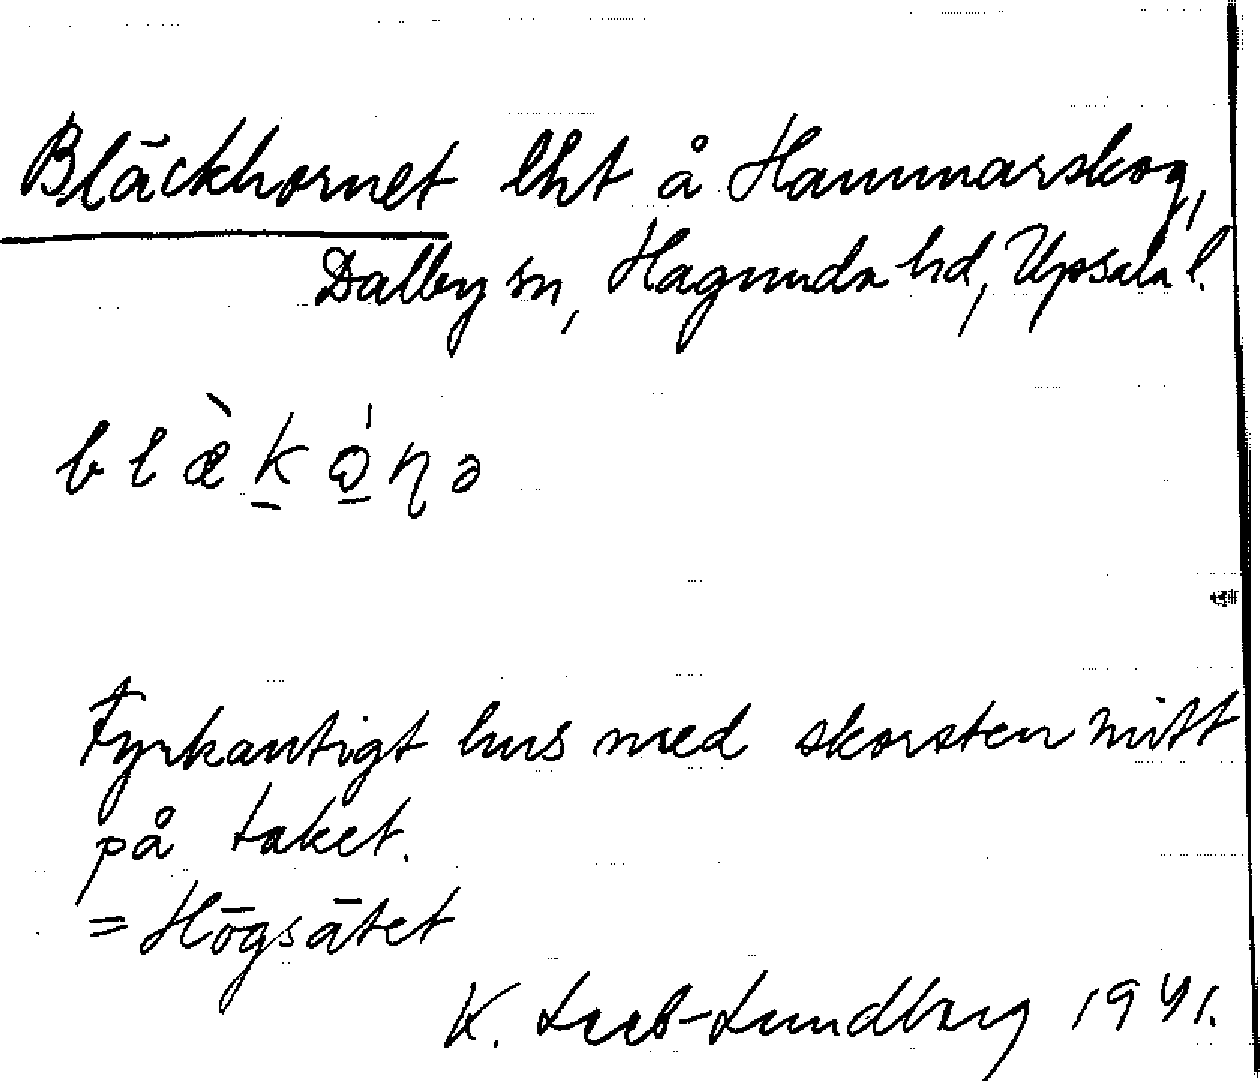 Bläckhornet lht å Hammarskog,
Dalby sn, Hagunda hd, Upsala l.
blæ̀k̠ǫ̠́ɳə
Fyrkantigt hus med skorsten mitt
på taket.
= Högsätet
K. Leeb-Lundberg 1941.